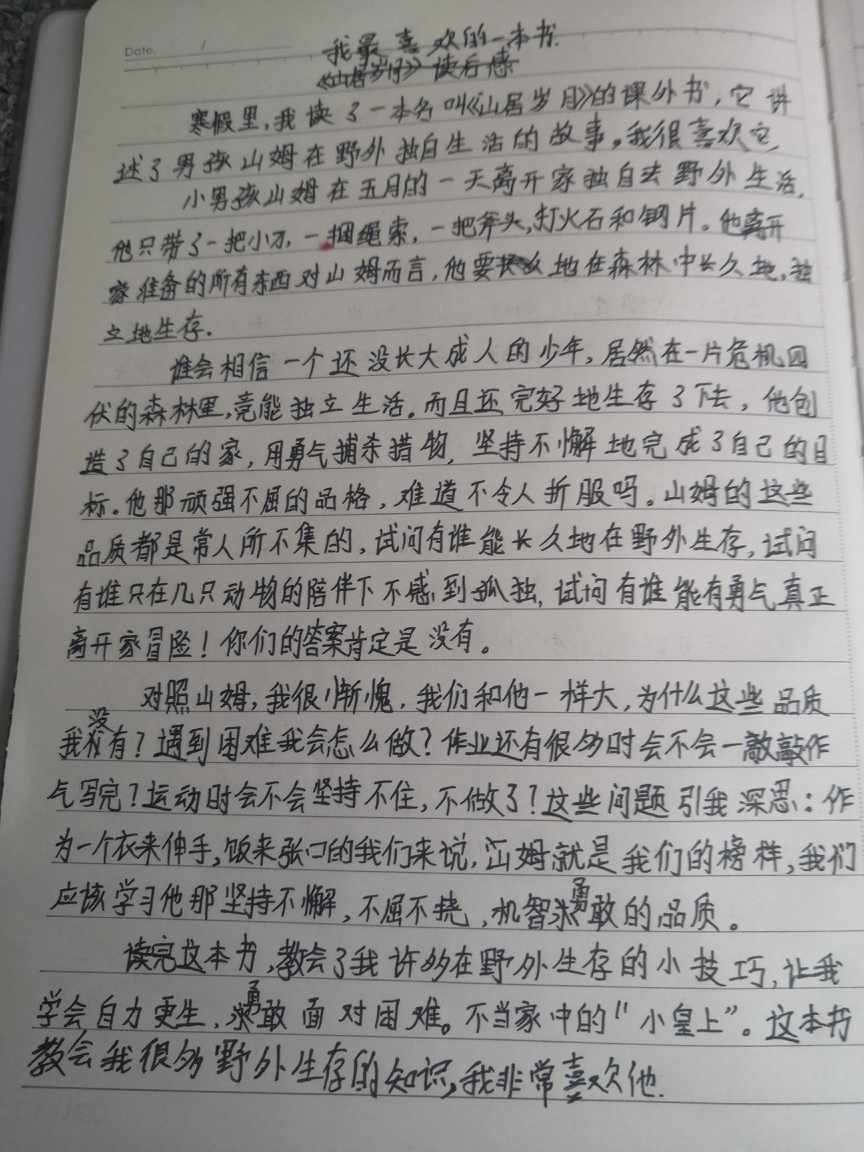 Date. /
我最喜欢的一本书.
《山居岁月》读后感
寒假里,我读了一本名叫《山居岁月》的课外书,它讲
述了男孩山姆在野外独自生活的故事。我很喜欢它,
小男孩山姆在五月的一天离开家独自去野外生活,
他只带了一把小刀,一捆绳索,一把斧头,打火石和钢片。他离开
家准备的所有东西对山姆而言,他要地在森林中长久地,独
立地生存.
谁会相信一个还没长大成人的少年,居然在一片危机四
伏的森林里,竟能独立生活。而且还完好地生存了下去,他创
造了自己的家,用勇气捕杀猎物,坚持不懈地完成了自己的目
标。他那顽强不屈的品格,难道不令人折服吗。山姆的这些
品质都是常人所不集的,试问有谁能长久地在野外生存,试问
有谁只在几只动物的陪伴下不感到孤独,试问有谁能有勇气真正
离开家冒险!你们的答案肯定是没有。
对照山姆,我很惭愧,我们和他一样大,为什么这些品质
我没有?遇到困难我会怎么做?作业还有很多时会不会一鼓作
气写完?运动时会不会坚持不住,不做了?这些问题引我深思:作
为一个衣来伸手,饭来张口的我们来说,山姆就是我们的榜样,我们
应该学习他那坚持不懈,不屈不挠,机智勇敢的品质。
读完这本书,教会了我许多在野外生存的小技巧,让我
学会自力更生,勇敢面对困难。不当家中的"小皇上"。这本书
教会我很多野外生存的知识,我非常喜欢他.